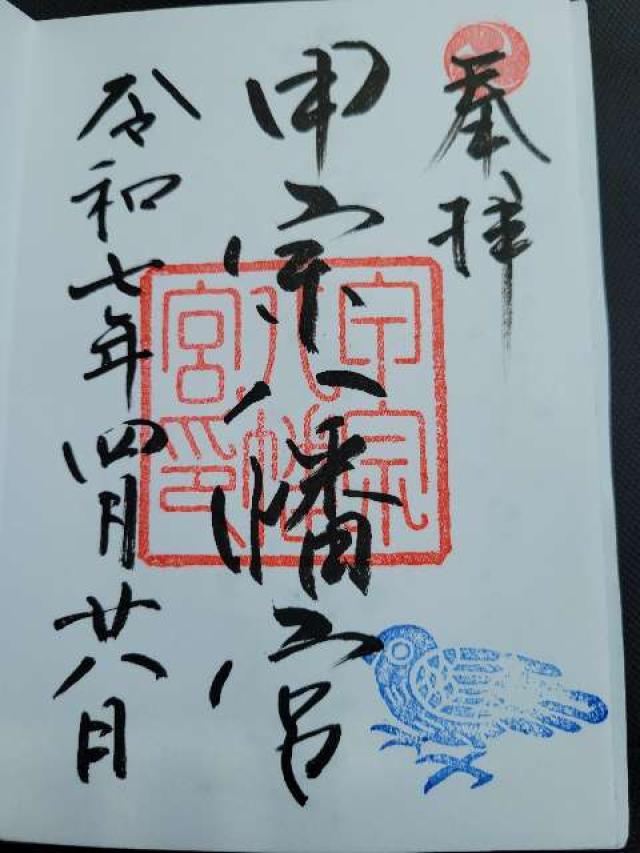 奉拝
甲宗八幡宮
甲宗
八幡
宮印
令和七年四月廿八日